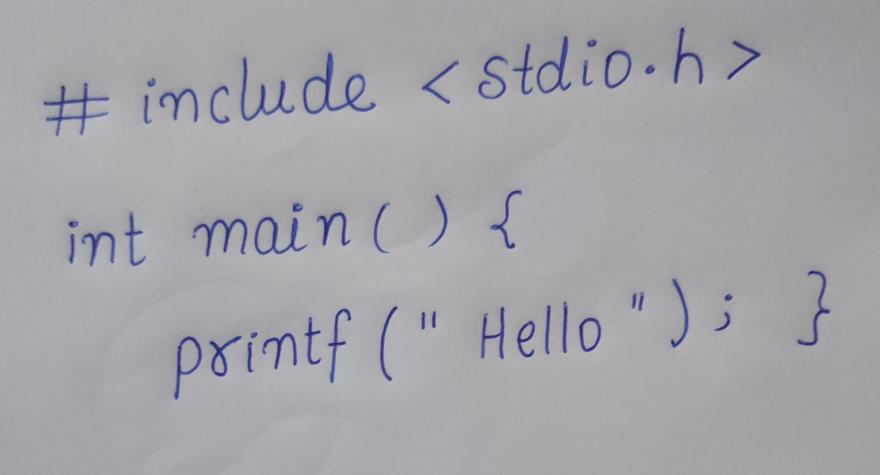 # include <stdio.h>
int main() {
printf (" Hello "); }